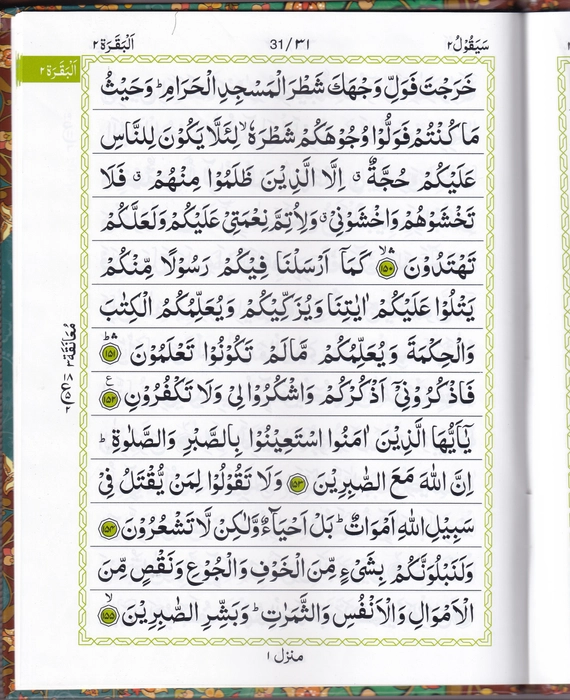 سَيَقُوْلُ ٢
31/٣١
اَلْبَقَرَة ٢
اَلْبَقَرَة ٢
خَرَجْتَ فَوَلِّ وَجْهَكَ شَطْرَ الْمَسْجِدِ الْحَرَامِ ؕ وَحَيْثُ
مَا كُنْتُمْ فَوَلُّوْا وُجُوْهَكُمْ شَطْرَهٗ ۙ لِئَلَّا يَكُوْنَ لِلنَّاسِ
عَلَيْكُمْ حُجَّةٌ ۙق اِلَّا الَّذِيْنَ ظَلَمُوْا مِنْهُمْ ۙق فَلَا
تَخْشَوْهُمْ وَاخْشَوْنِيْ ۙق وَلِاُتِمَّ نِعْمَتِيْ عَلَيْكُمْ وَلَعَلَّكُمْ
تَهْتَدُوْنَ ۙۛ ﴿١٥٠﴾ كَمَاۤ اَرْسَلْنَا فِيْكُمْ رَسُوْلًا مِّنْكُمْ
يَتْلُوْا عَلَيْكُمْ اٰيٰتِنَا وَيُزَكِّيْكُمْ وَيُعَلِّمُكُمُ الْكِتٰبَ
وَالْحِكْمَةَ وَيُعَلِّمُكُمْ مَّا لَمْ تَكُوْنُوْا تَعْلَمُوْنَ ؕۛ ﴿١٥١﴾
فَاذْكُرُوْنِيْۤ اَذْكُرْكُمْ وَاشْكُرُوْا لِيْ وَلَا تَكْفُرُوْنِ ع ﴿١٥٢﴾
يٰۤاَيُّهَا الَّذِيْنَ اٰمَنُوا اسْتَعِيْنُوْا بِالصَّبْرِ وَالصَّلٰوةِ ؕ
اِنَّ اللّٰهَ مَعَ الصّٰبِرِيْنَ ﴿١٥٣﴾ وَلَا تَقُوْلُوْا لِمَنْ يُّقْتَلُ فِيْ
سَبِيْلِ اللّٰهِ اَمْوَاتٌ ؕ بَلْ اَحْيَآءٌ وَّلٰكِنْ لَّا تَشْعُرُوْنَ ﴿١٥٤﴾
وَلَنَبْلُوَنَّكُمْ بِشَيْءٍ مِّنَ الْخَوْفِ وَالْجُوْعِ وَنَقْصٍ مِّنَ
الْاَمْوَالِ وَالْاَنْفُسِ وَالثَّمَرٰتِ ؕ وَبَشِّرِ الصّٰبِرِيْنَ ۙ ﴿١٥٥﴾
مُعَانَقَة ٣
منزل ١